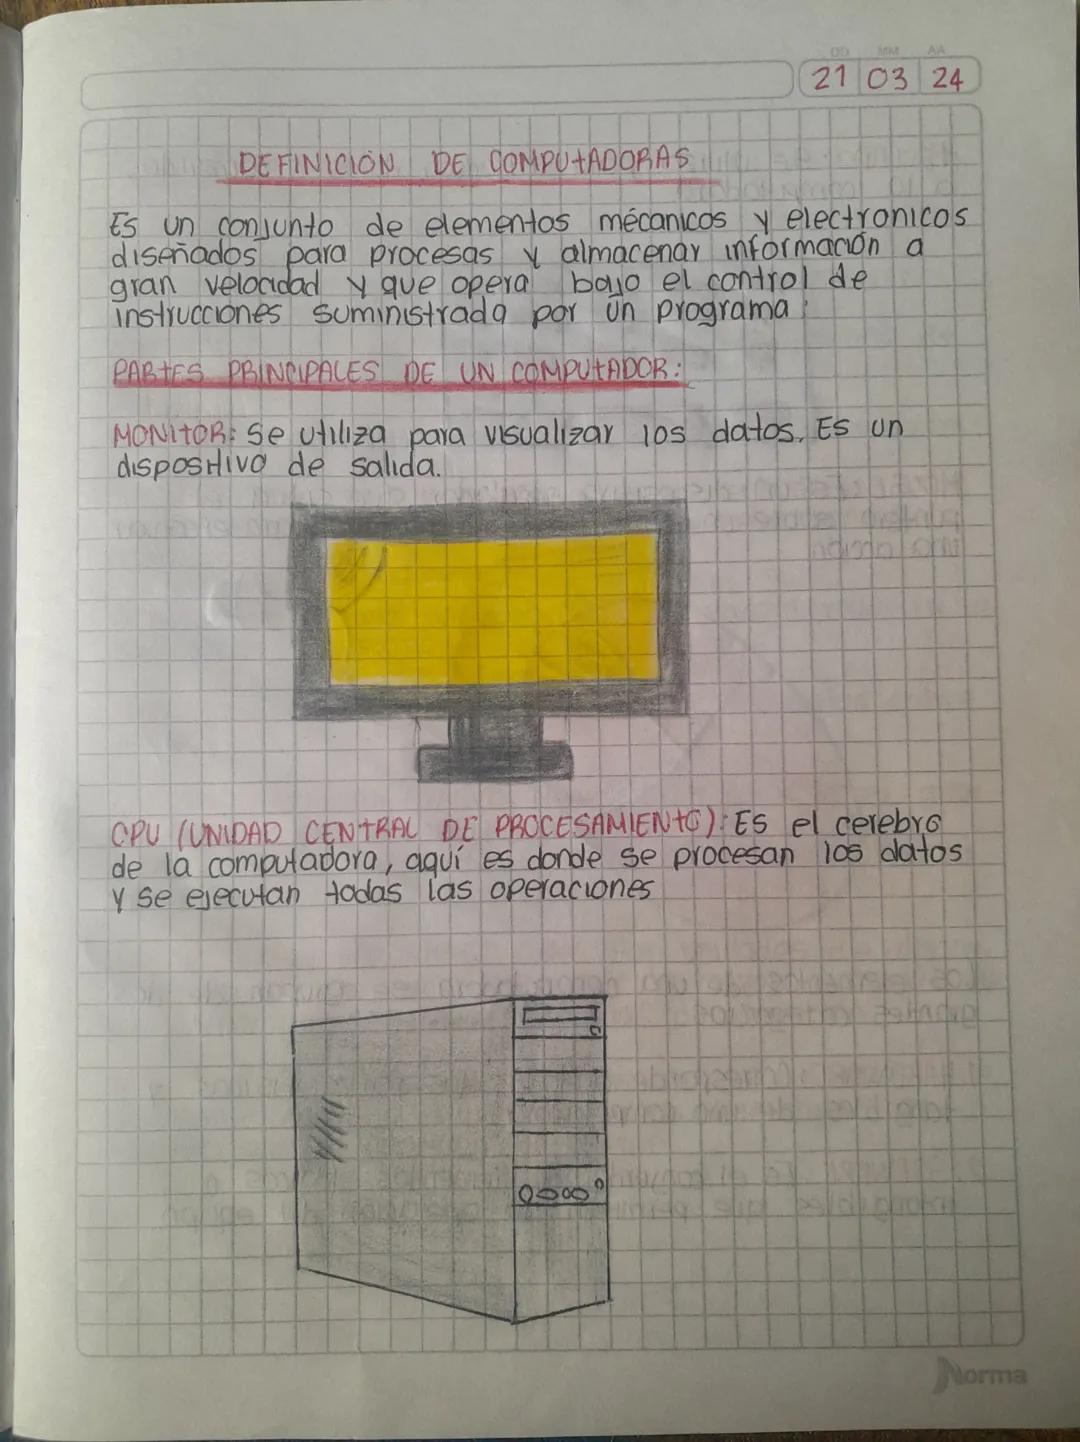 DD MM AA
21 03 24
DEFINICIÓN DE COMPUTADORAS
Es un conjunto de elementos mécanicos y electronicos
diseñados para procesas y almacenar información a
gran velocidad y que opera bajo el control de
instrucciones suministrada por un programa.
PARTES PRINCIPALES DE UN COMPUTADOR:
MONITOR: Se utiliza para visualizar los datos. Es un
dispositivo de salida.
CPU (UNIDAD CENTRAL DE PROCESAMIENTO): Es el cerebro
de la computadora, aquí es donde se procesan los datos
y se ejecutan todas las operaciones
Norma